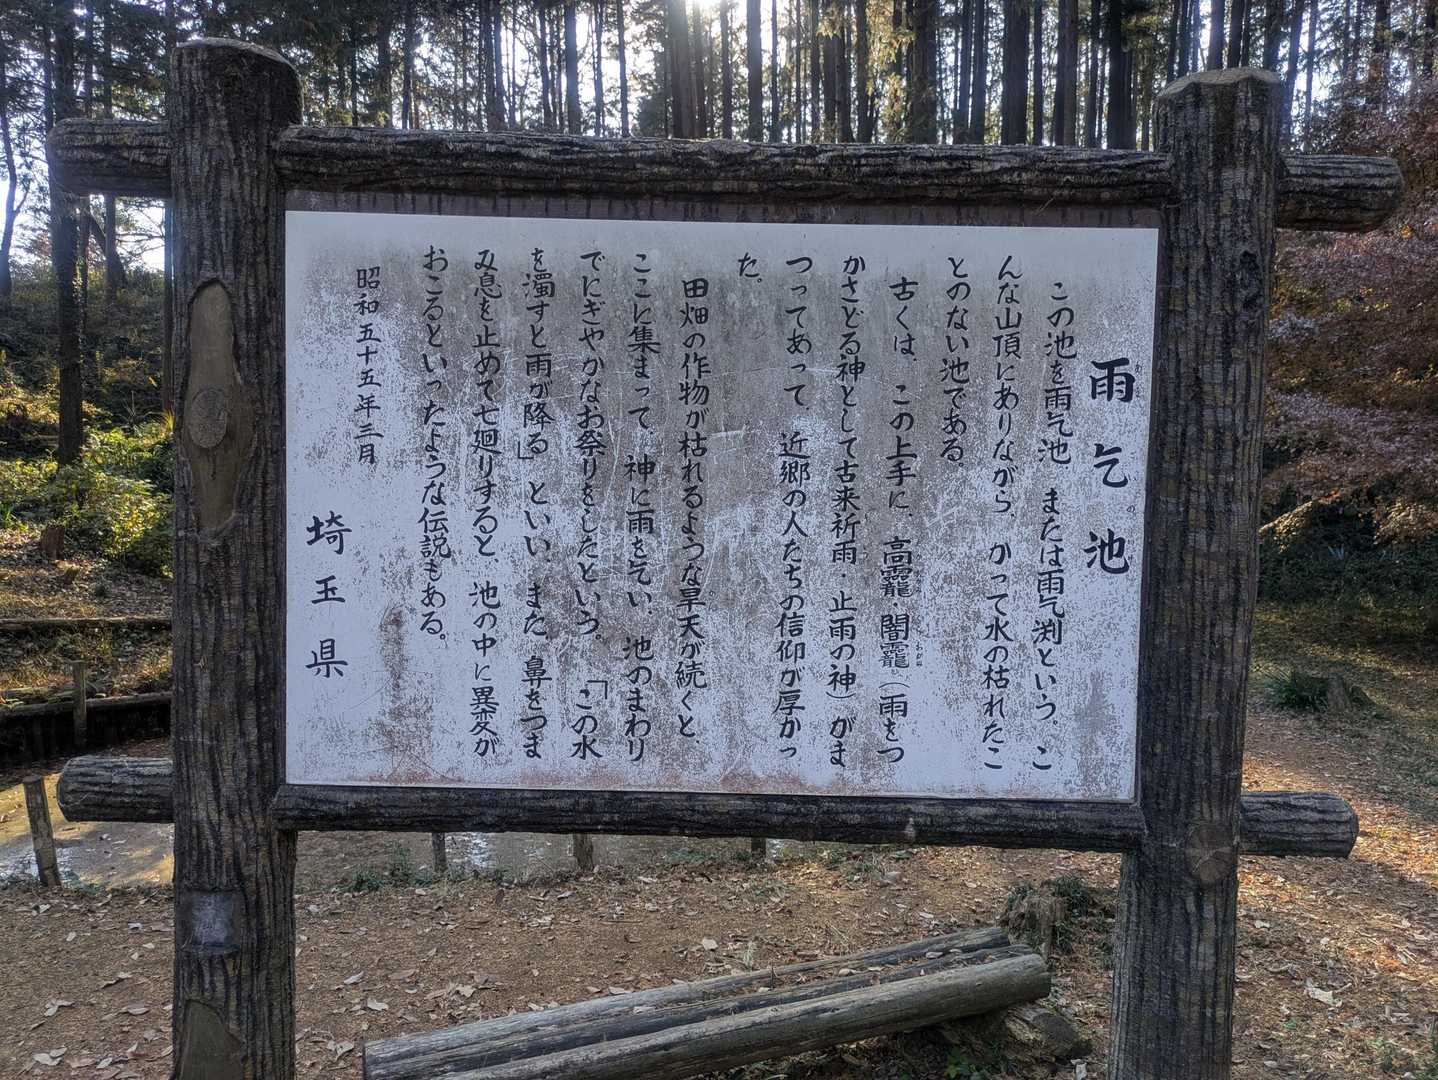 雨乞池
この池を雨乞池　または雨乞渕という。こ
んな山頂にありながら、かって水の枯れたこ
とのない池である。
古くは、この上手に、高龗・闇龗（雨をつ
かさどる神として古来祈雨・止雨の神）がま
つってあって、近郷の人たちの信仰が厚かっ
た。
田畑の作物が枯れるような旱天が続くと、
ここに集まって、神に雨を乞い、池のまわり
でにぎやかなお祭りをしたという。「この水
を濁すと雨が降る」といい、また、鼻をつま
み息を止めて七廻りすると、池の中に異変が
おこるといったような伝説もある。
昭和五十五年三月
埼玉県